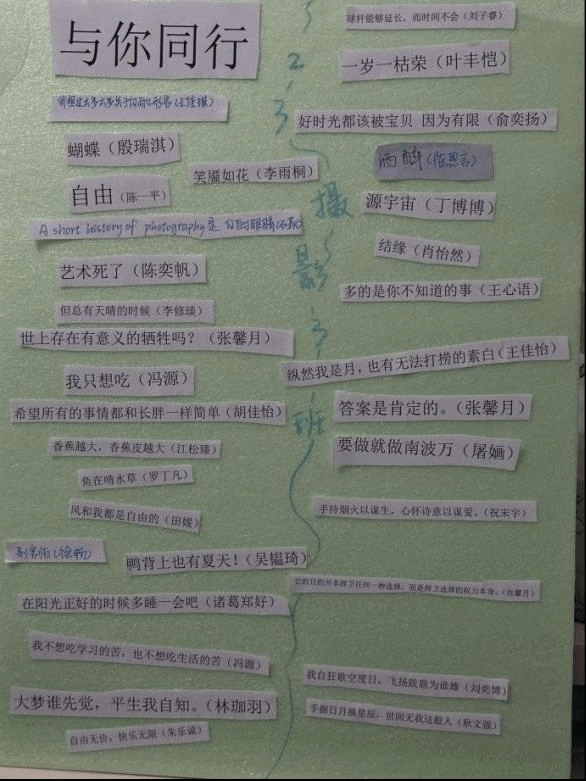 与你同行
蝴蝶（殷瑞淇）
笑靥如花（李雨桐）
自由（陈一平）
A short history of photography是
艺术死了（陈奕帆）
但总有天晴的时候（李修琰）
世上存在有意义的牺牲吗？（张馨月）
我只想吃（冯源）
希望所有的事情都和长胖一样简单（胡佳怡）
香蕉越大，香蕉皮越大（江松臻）
鱼在啃水草（罗丁凡）
风和我都是自由的（田媛）
别害怕（徐畅）
鸭背上也有夏天！（吴韫琦）
在阳光正好的时候多睡一会吧（诸葛郑好）
我不想吃学习的苦，也不想吃生活的苦（冯源）
大梦谁先觉，平生我自知。（林珈羽）
自由无价，快乐无限（朱乐诚）
2
3
摄
影
3
班
球杆能够延长，而时间不会（刘子睿）
一岁一枯荣（叶丰恺）
好时光都该被宝贝 因为有限（俞奕扬）
洒酣（陈思言）
源宇宙（丁博博）
结缘（肖怡然）
多的是你不知道的事（王心语）
纵然我是月，也有无法打捞的素白（王佳怡）
答案是肯定的。（张馨月）
要做就做南波万（屠婳）
手持烟火以谋生，心怀诗意以谋爱。（祝宋宇）
它的目的并非捍卫任何一种选择，而是捍卫选择的权力本身。（张馨月）
我自狂歌空度日，飞扬跋扈为谁雄（刘奕博）
手握日月摘星辰，世间无我这般人（耿文强）